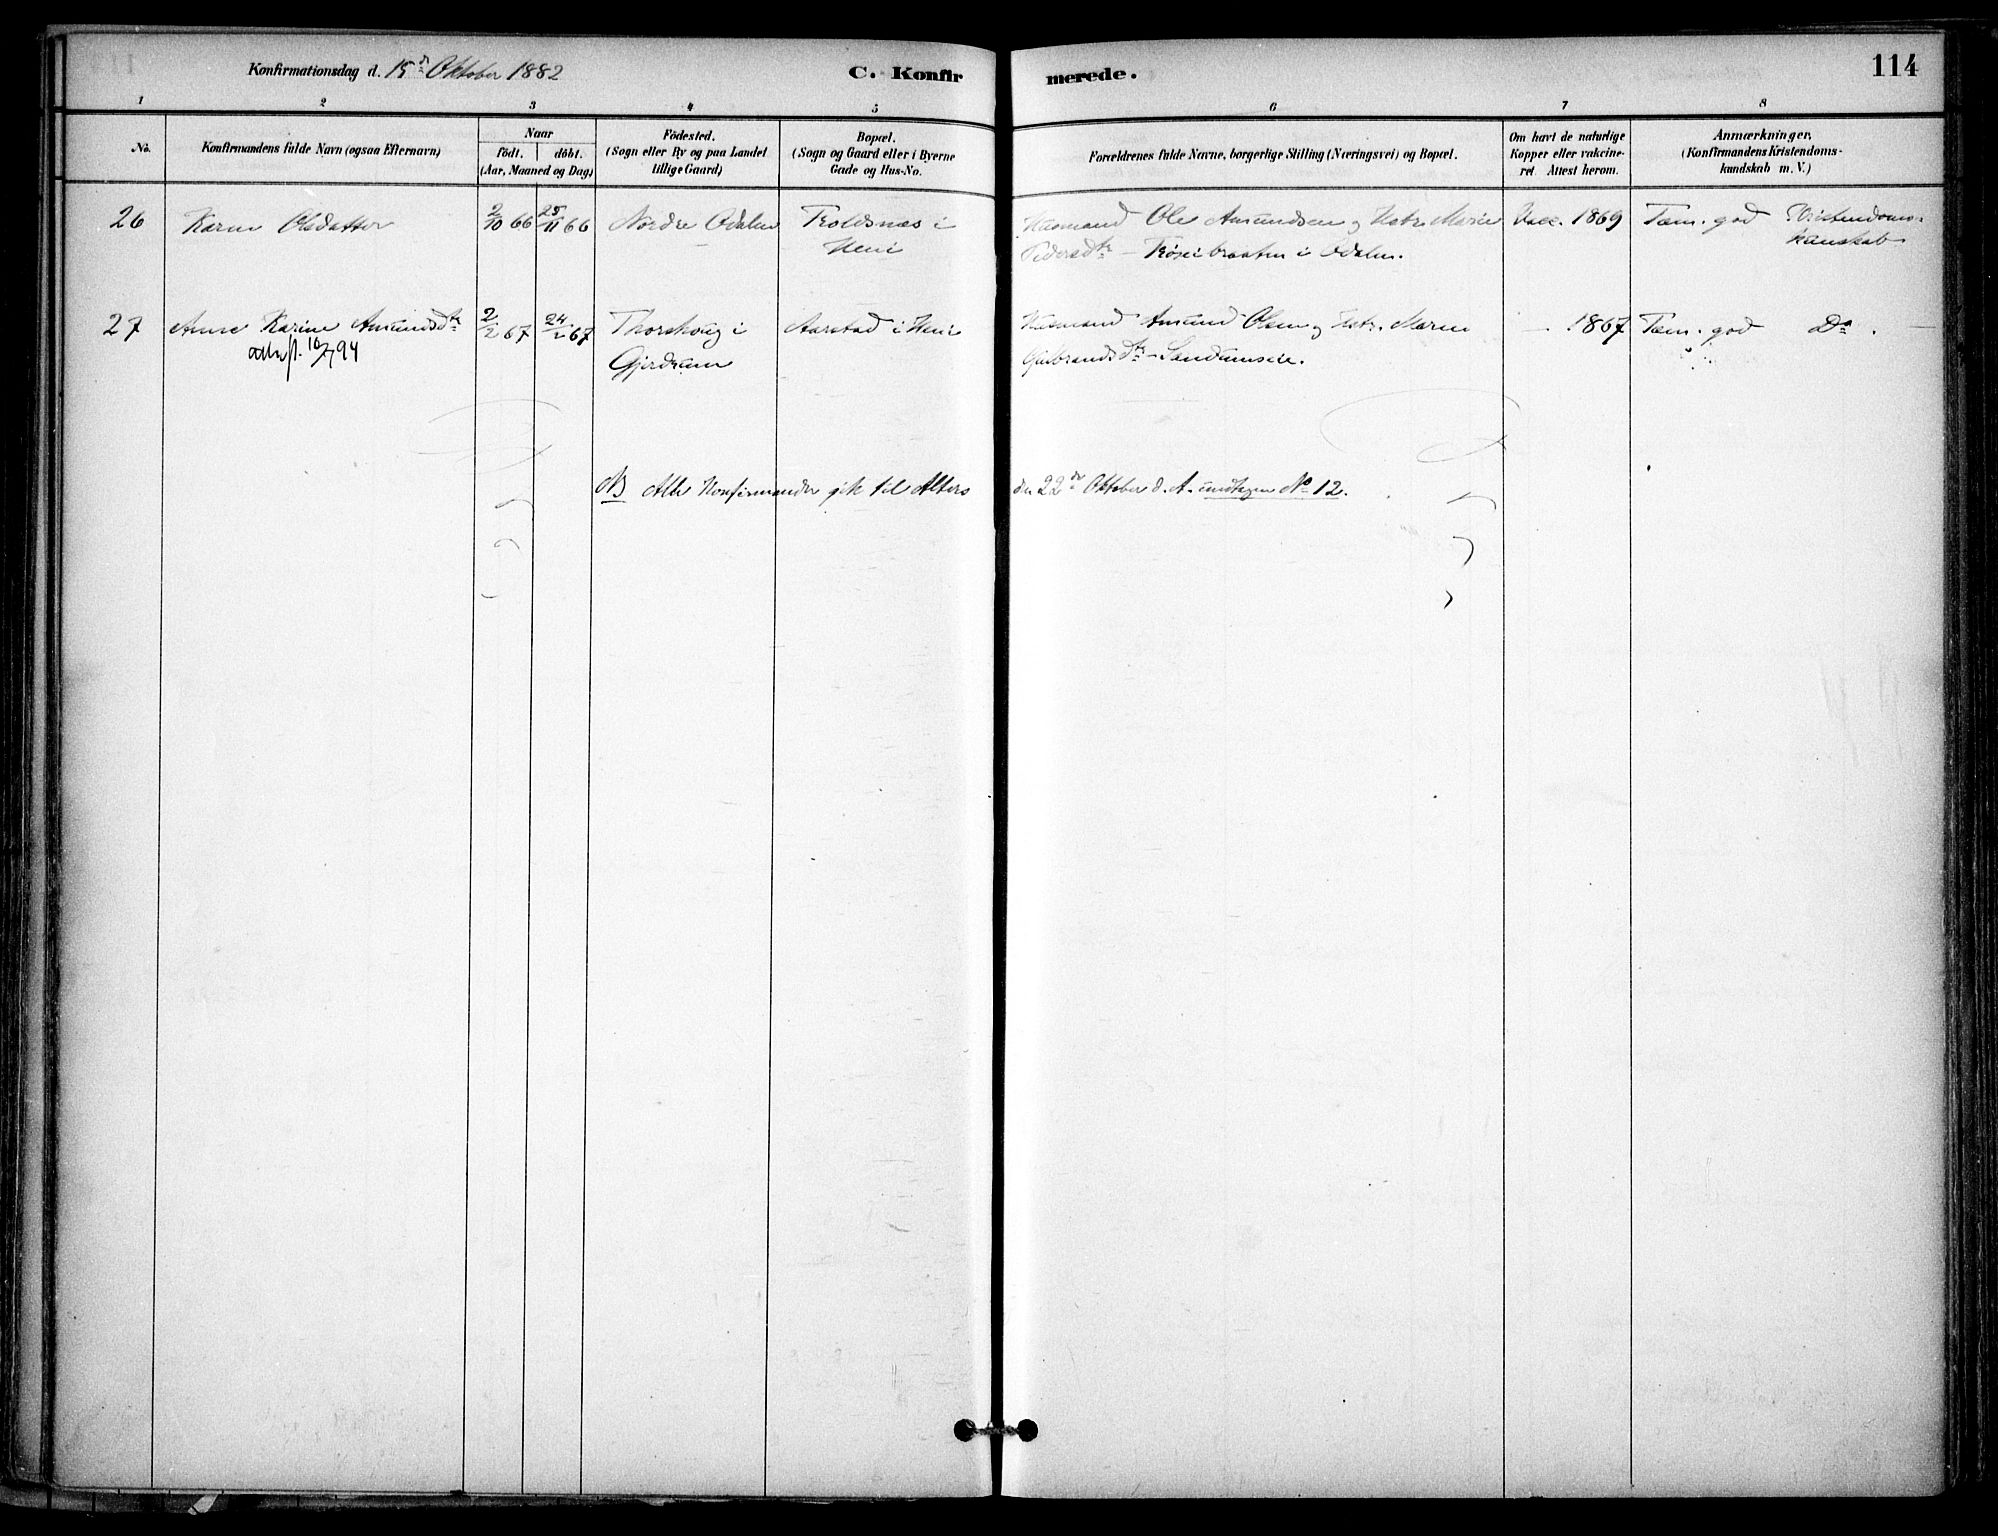 Konfirmationsdag d. 15de Oktober 1882
C. Konfir
merede.
114
1
2
3
4
5
6
7
8
No.
Konfirmandens fulde Navn (ogsaa Efternavn)
Naar
födt. döbt.
(Aar, Maaned og Dag)
Födested.
(Sogn eller By og paa Landet
tillige Gaard)
Bopæl.
(Sogn og Gaard eller i Byerne
Gade og Hus-No.
Forældrenes fulde Navne, borgerlige Stilling (Næringsvei) og Bopæl.
Om havt de naturlige
Kopper eller vakcine-
ret. Attest herom.
Anmærkninger,
(Konfirmandens Kristendoms-
kundskab m. V.)
26
Karen Olsdatter
2/10 66
25/11 66
Nordre Odalen
Troldsnæs i
Heni
Husmand Ole Amundsen og Hstr. Marie
Pedersdtr – i Odalen.
Vacc. 1869
Tem. god Kristendoms-
kunskab
27
Anne Karine Amundsdtr
2/2 67
24/2 67
Thorshoug i
Gjerdrum
Aarstad i Heni
Husmand Amund Olsen og Hstr. Maren
Gulbrandsdtr – Sandumseie.
– 1867
Tem. god Do. –
NB Alle Konfirmander gik til Alters
den 22de Oktober d. A. undtagen No 12.